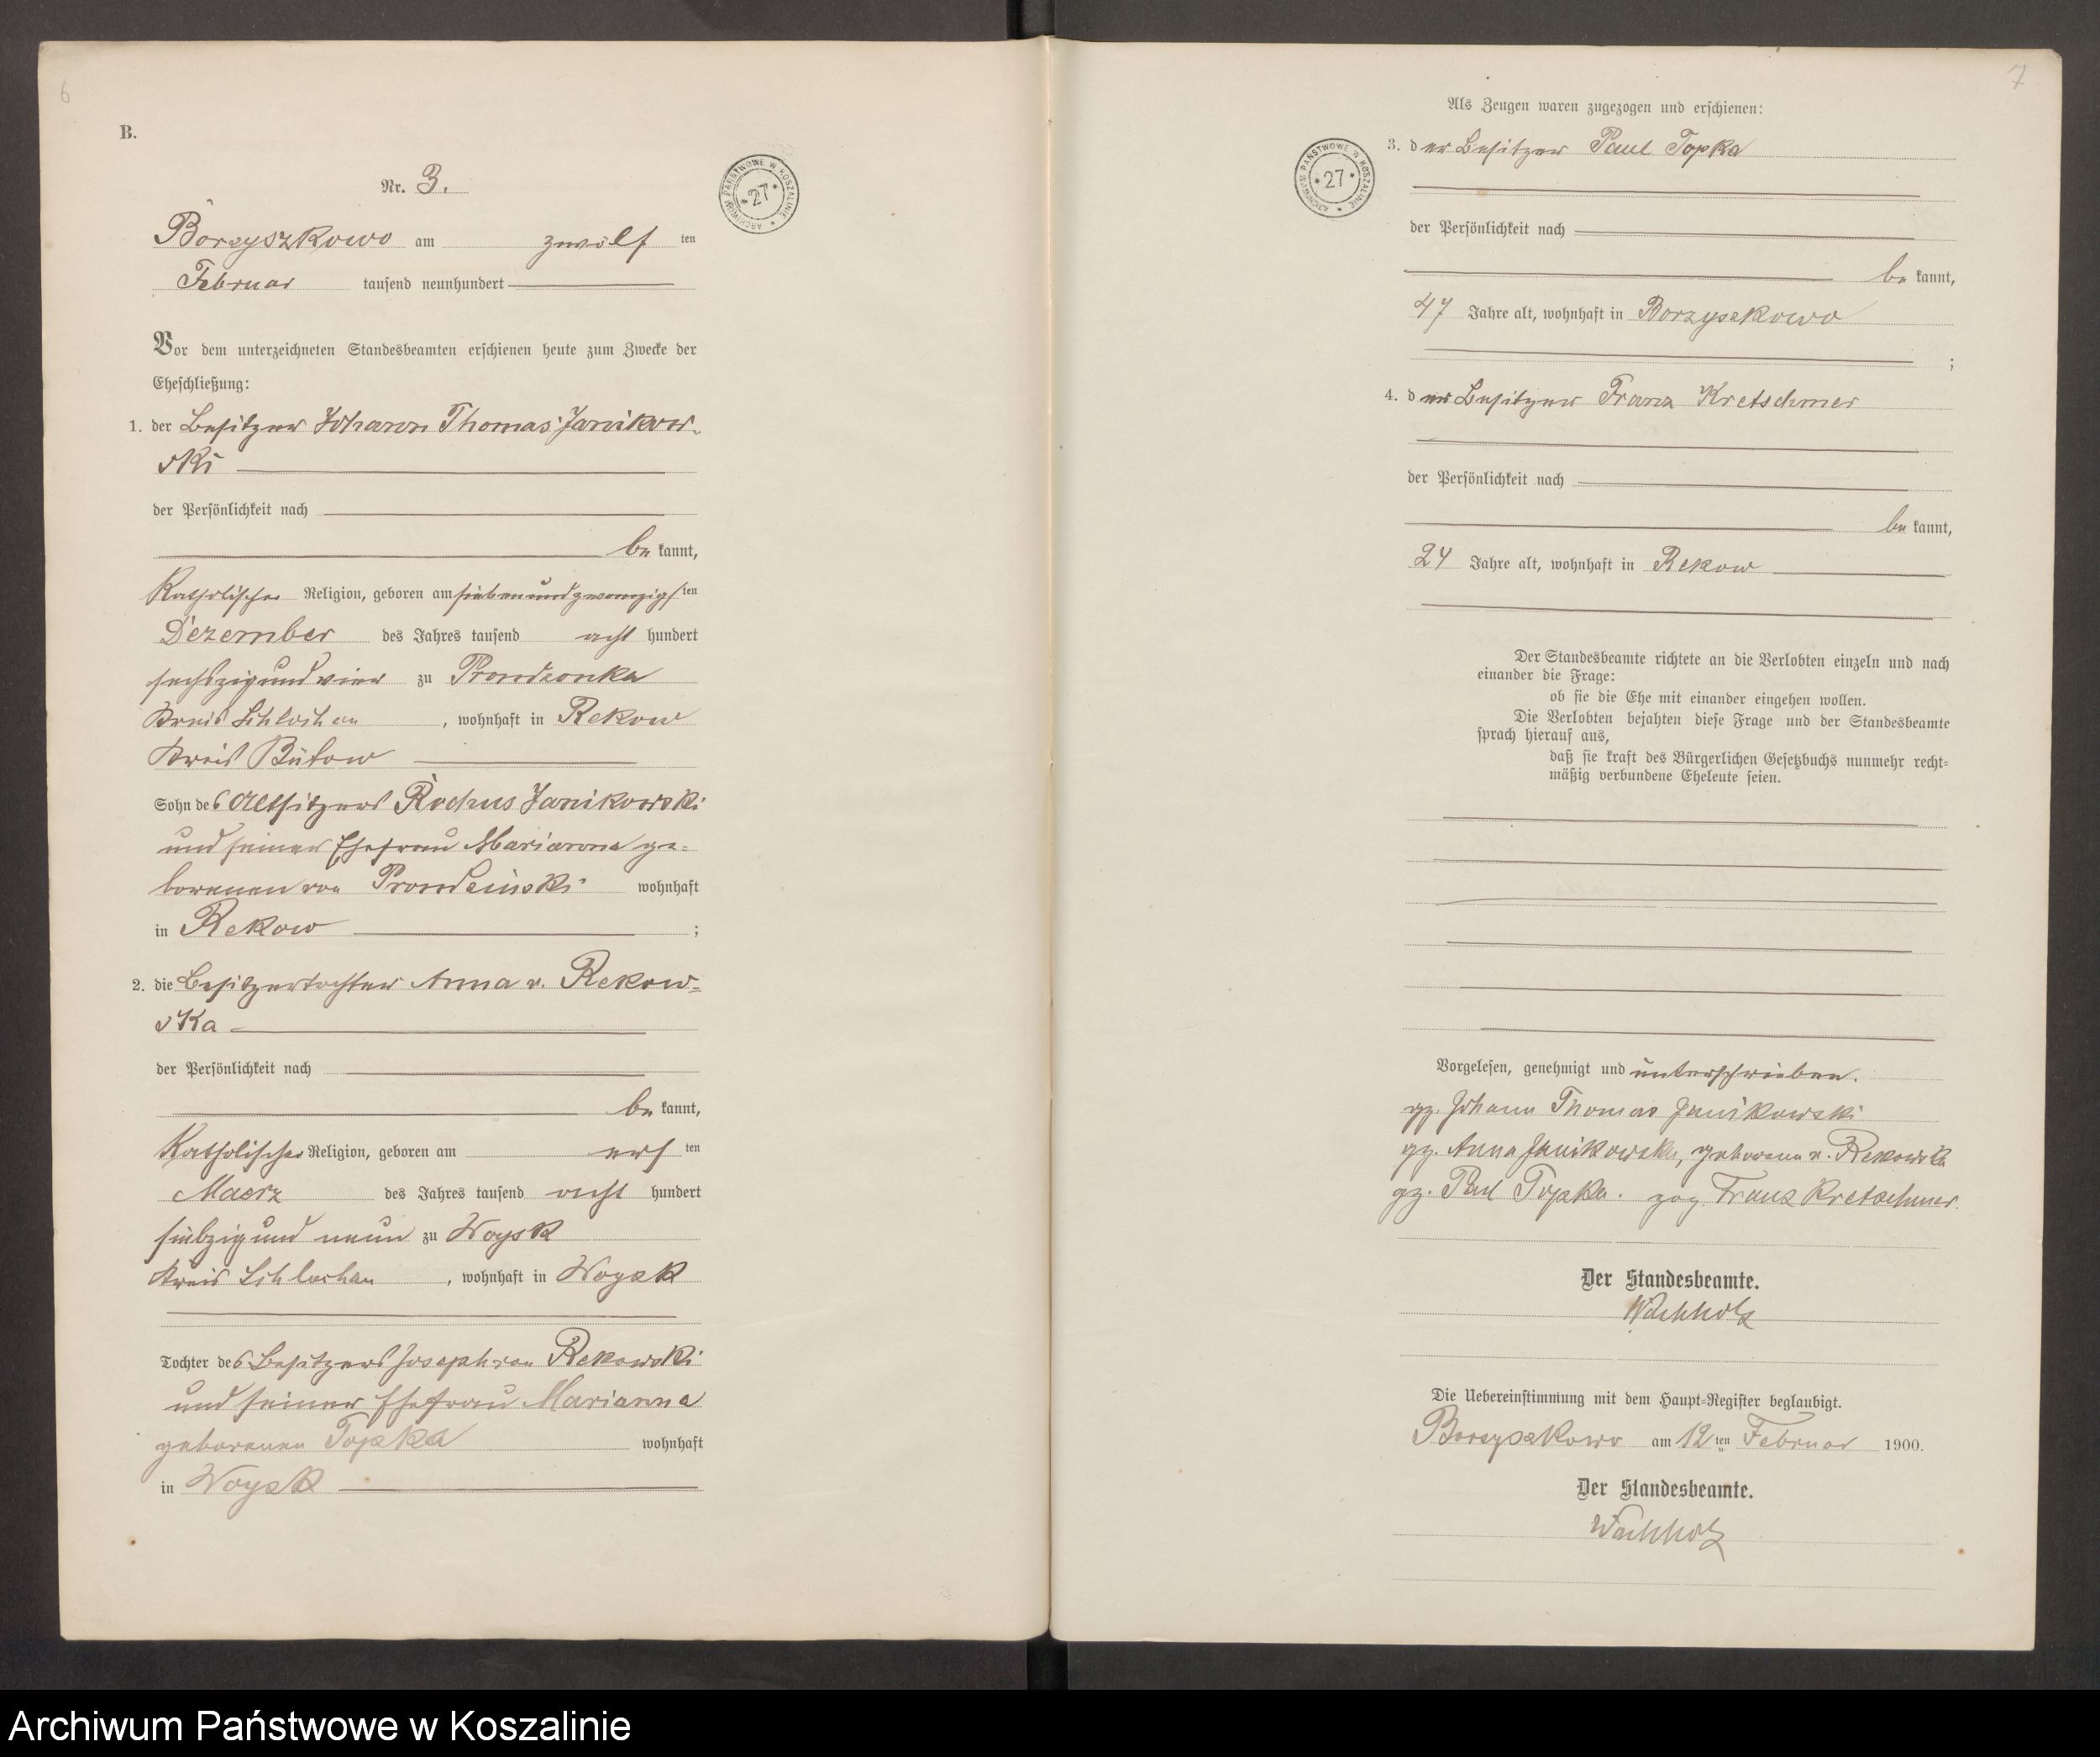 6
B.
Nr. 3.
ARCHIWUM PAŃSTWOWE W KOSZALINIE * 27 *
Borzyszkowo am zwölf ten
Februar tausend neunhundert
Vor dem unterzeichneten Standesbeamten erschienen heute zum Zwecke der
Eheschließung:
1. der Besitzer Johann Thomas Janikow-
ski
der Persönlichkeit nach
be kannt,
Katholischer Religion, geboren am siebenundzwanzigsten
Dezember des Jahres tausend acht hundert
sechszigundvier zu Prondzonka
Kreis Schlochau, wohnhaft in Rekow
Kreis Bütow
Sohn des Altsitzers Rochus Janikowski
und seiner Ehefrau Marianna ge-
borenen von Prondzinski wohnhaft
in Rekow ;
2. die Besitzertochter Anna v. Rekow-
ska
der Persönlichkeit nach
be kannt,
Katholischer Religion, geboren am ersten
Maerz des Jahres tausend acht hundert
siebzigund neun zu Woysk
Kreis Schlochau, wohnhaft in Woysk
Tochter des Besitzers Joseph von Rekowski
und seiner Ehefrau Marianna
geborenen Topka wohnhaft
in Woysk
7
Als Zeugen waren zugezogen und erschienen:
ARCHIWUM PAŃSTWOWE W KOSZALINIE * 27 *
3. der Besitzer Paul Topka
der Persönlichkeit nach
be kannt,
47 Jahre alt, wohnhaft in Borzyszkowo
;
4. der Besitzer Franz Kretschmer
der Persönlichkeit nach
be kannt,
24 Jahre alt, wohnhaft in Rekow
Der Standesbeamte richtete an die Verlobten einzeln und nach
einander die Frage:
ob sie die Ehe mit einander eingehen wollen.
Die Verlobten bejahten diese Frage und der Standesbeamte
sprach hierauf aus,
daß sie kraft des Bürgerlichen Gesetzbuchs nunmehr recht-
mäßig verbundene Eheleute seien.
Vorgelesen, genehmigt und unterschrieben.
gz. Johann Thomas Janikowski
gz. Anna Janikowska, geborene v. Rekowska
gz. Paul Topka. gez. Franz Kretschmer.
Der Standesbeamte.
Wachholz
Die Uebereinstimmung mit dem Haupt-Register beglaubigt.
Borzyszkowo am 12 ten Februar 1900.
Der Standesbeamte.
Wachholz
Archiwum Państwowe w Koszalinie